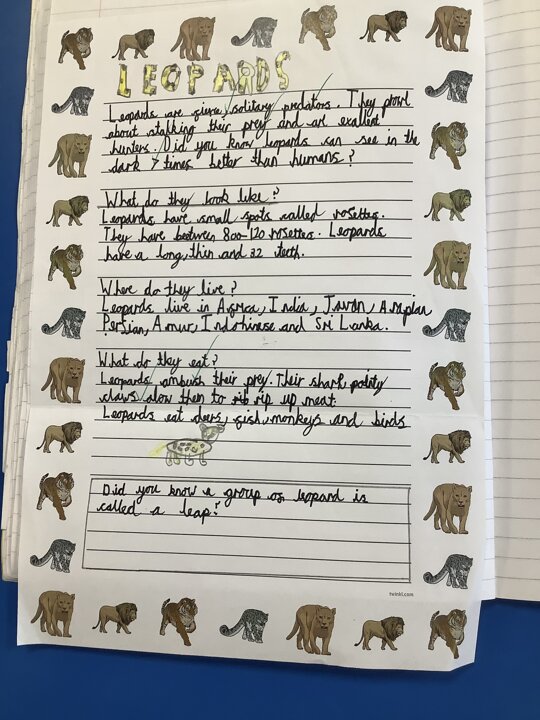 LEOPARDS
Leopards are fierce, solitary predators. They prowl
about stalking their prey and are exallent
hunters. Did you know leopards can see in the
dark 7 times better than humans?
What do they look like?
Leopards have small spots called rosettes.
They have between 800-120 rosettes. Leopards
have a long, thin and 32 teeth.
Where do they live?
Leopards live in Africa, India, Javan, Arapian
Persian, Amur, Indohinese and Sri Lanka.
What do they eat?
Leopards ambush their prey. Their sharp,
claws alow them to rib rip up meat.
Leopards eat deers, fish, monkeys and birds
Did you know a group of leopard is
called a leap?
twinkl.com